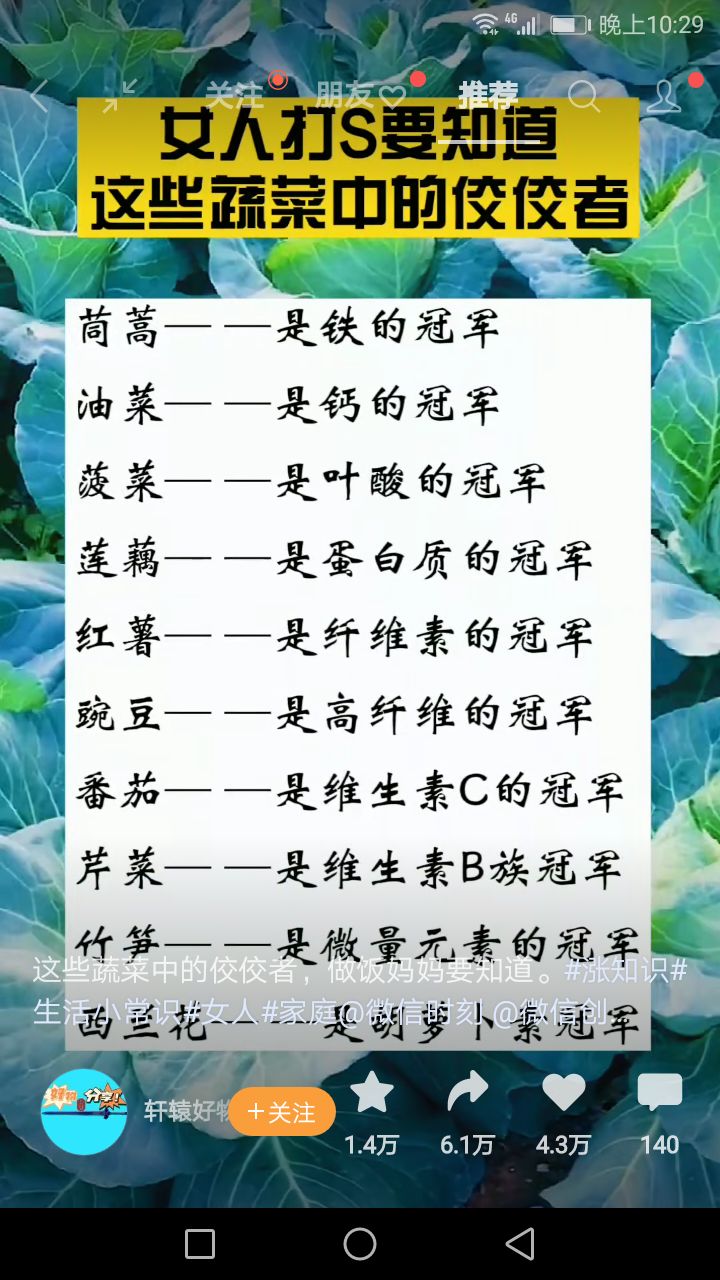 4G 晚上10:29
关注 朋友 推荐
女人打S要知道
这些蔬菜中的佼佼者
茼蒿— —是铁的冠军
油菜— —是钙的冠军
菠菜— —是叶酸的冠军
莲藕— —是蛋白质的冠军
红薯— —是纤维素的冠军
豌豆— —是高纤维的冠军
番茄— —是维生素C的冠军
芹菜— —是维生素B族冠军
竹笋— —是微量元素的冠军
这些蔬菜中的佼佼者，做饭妈妈要知道。#涨知识#
生活小常识#女人#家庭@微信时刻 @微信创...
西兰花— —是胡萝卜素冠军
好物 分享
轩辕好物
+关注
1.4万 6.1万 4.3万 140